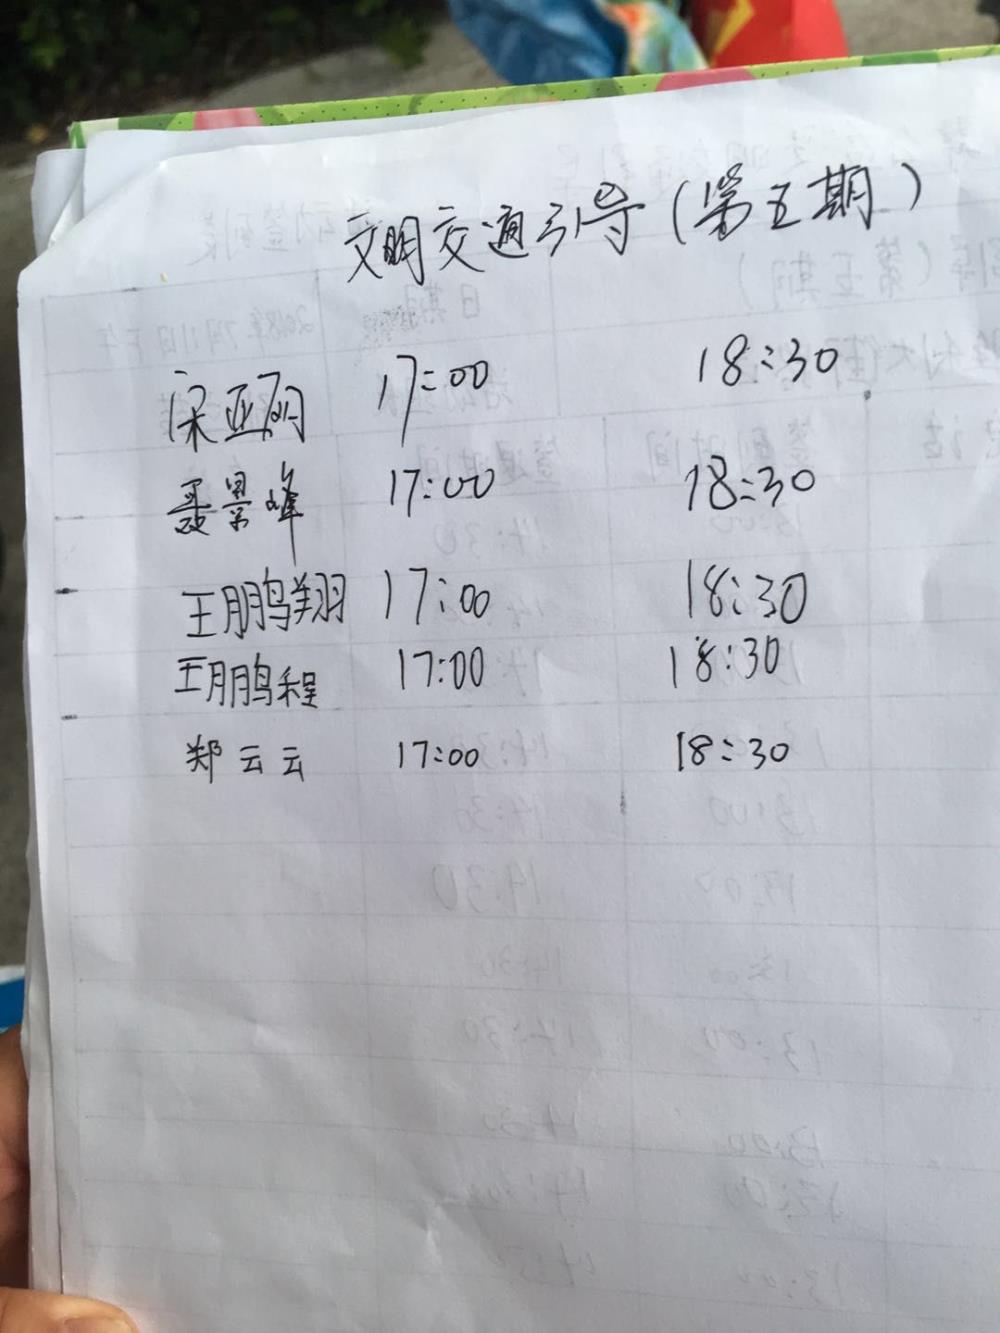 文明交通引导(第五期)
宋亚丽 17:00 18:30
聂景峰 17:00 18:30
王鹏翔 17:00 18:30
王鹏程 17:00 18:30
郑云云 17:00 18:30